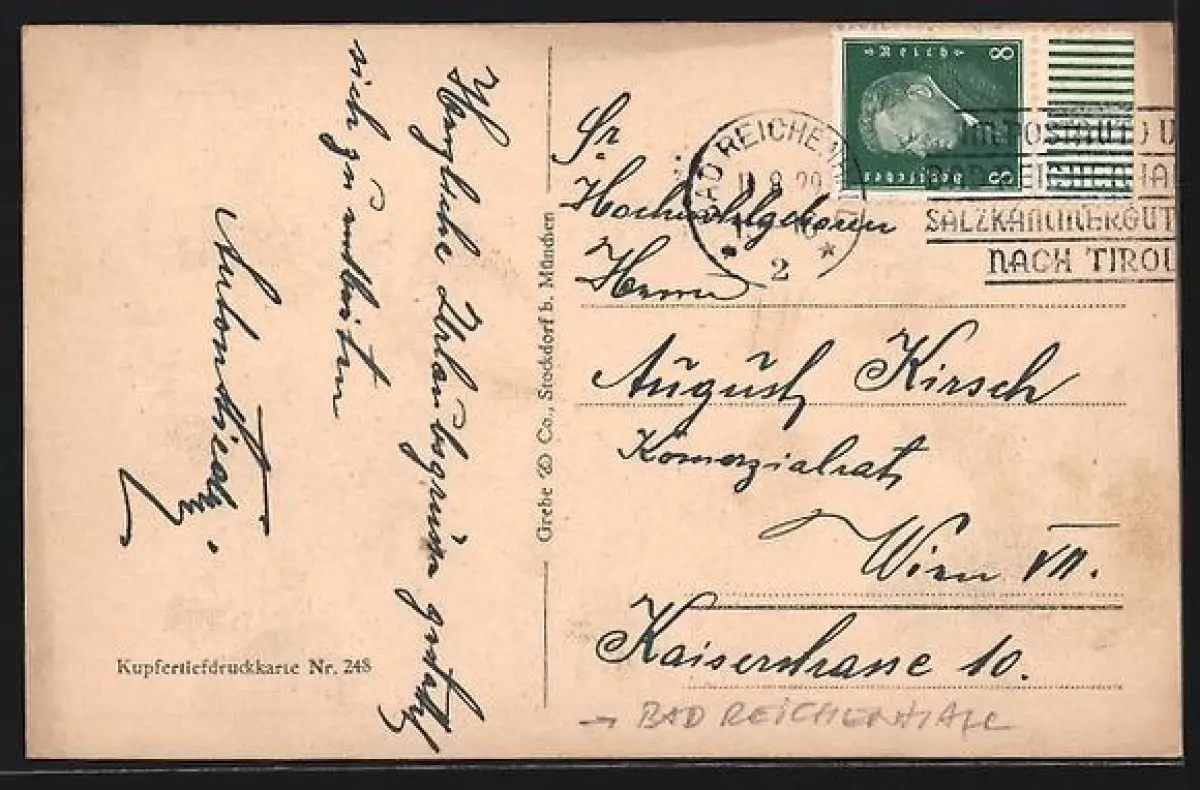 Herzliche Urlaubsgrüße gestattet
sich zu entbieten
Grebe & Co., Stockdorf b. München
Kupfertiefdruckkarte Nr. 248
8 Deutsches Reich 8
BAD REICHENHALL
11.9.29
2
MIT POSTAUTO
BAD REICHENHALL
SALZKAMMERGUT
NACH TIROL
Sr.
Hochwohlgeboren
Herrn
August Kirsch
Komerzialrat
Wien VII.
Kaiserstrasse 10.
→ BAD REICHENHALL